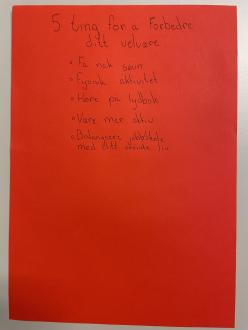 5 ting for å Forbedre
ditt velvære
• Få nok søvn
• Fysisk aktivitet
• Høre på lydbok
• Være mer aktiv
• Balansere jobb
med ditt liv